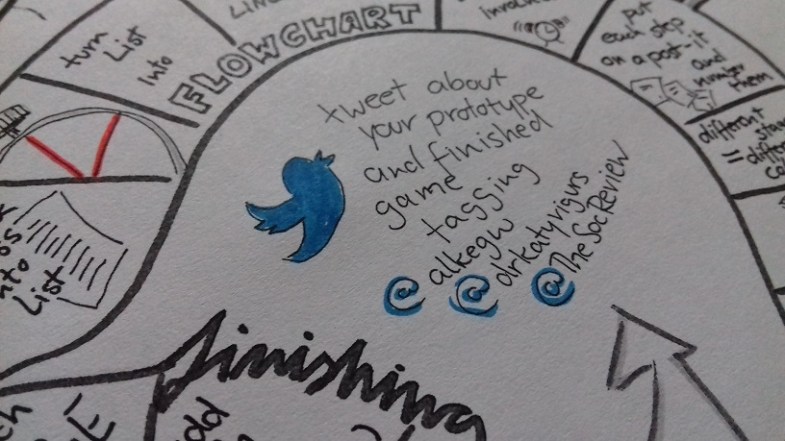 turn
List
Into
FLOWCHART
put
each step
on a post-it
and
number
them
different
tweet about
your prototype
and finished
game
tagging
@alkegw
@drkatyvigurs
@TheSocReview
into
List
finishing